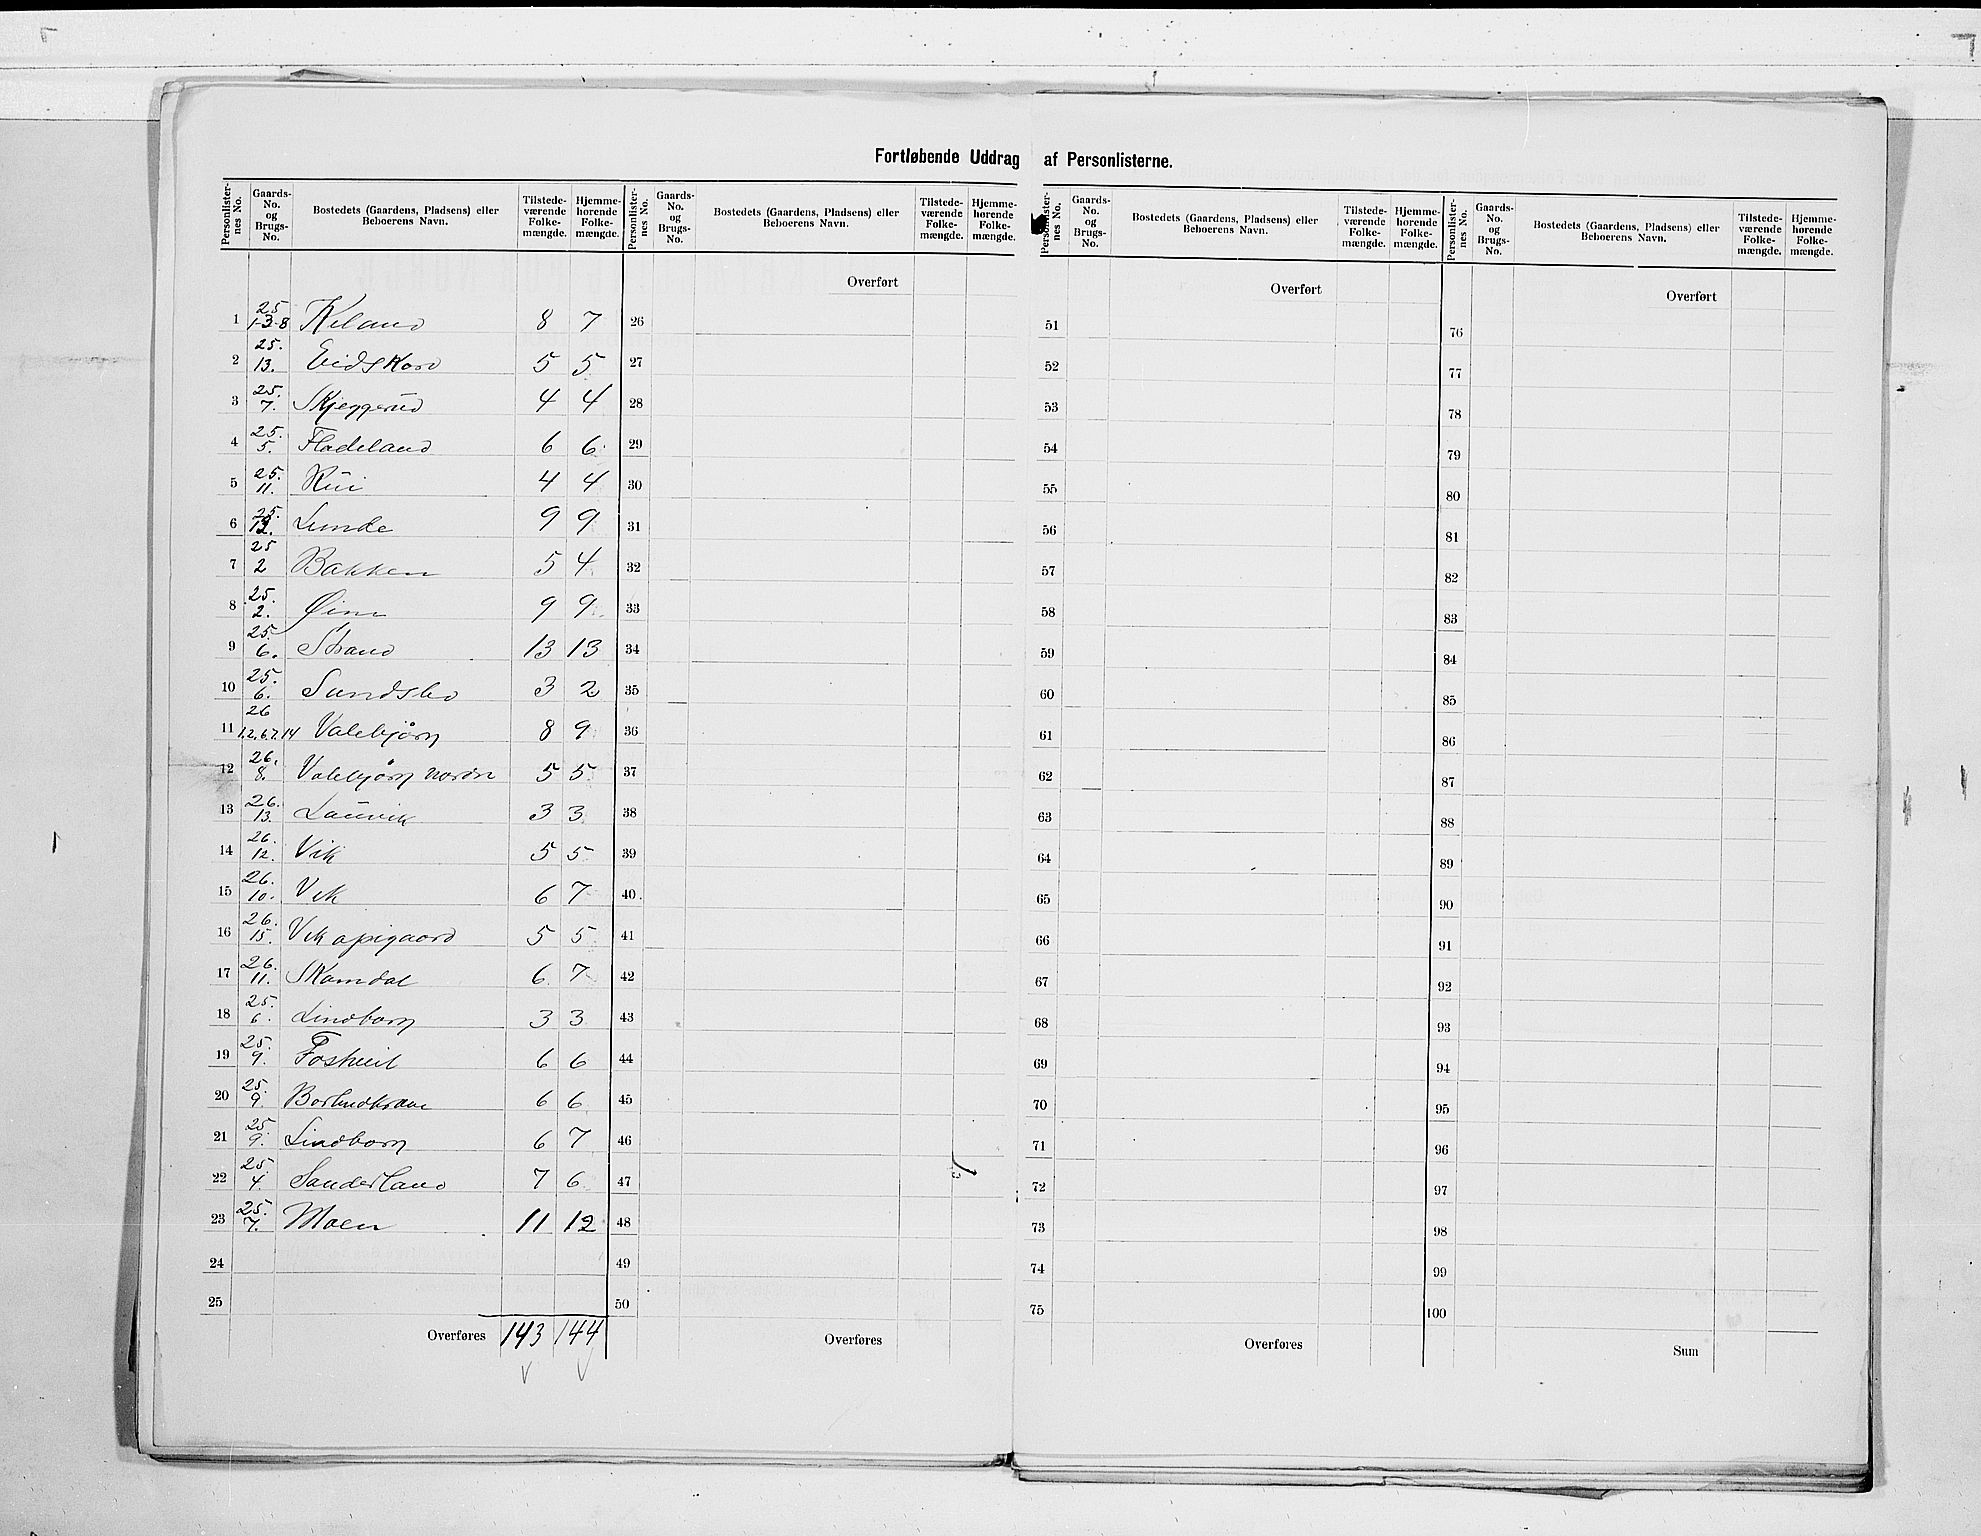 Fortløbende Uddrag af Personlisterne.
Personlisternes No. Gaards-No. og Brugs-No. Bostedets (Gaardens, Pladsens) eller Beboerens Navn. Tilstedeværende Folkemængde. Hjemmehørende Folkemængde.
Personlisternes No. Gaards-No. og Brugs-No. Bostedets (Gaardens, Pladsens) eller Beboerens Navn. Tilstedeværende Folkemængde. Hjemmehørende Folkemængde.
Personlisternes No. Gaards-No. og Brugs-No. Bostedets (Gaardens, Pladsens) eller Beboerens Navn. Tilstedeværende Folkemængde. Hjemmehørende Folkemængde.
Personlisternes No. Gaards-No. og Brugs-No. Bostedets (Gaardens, Pladsens) eller Beboerens Navn. Tilstedeværende Folkemængde. Hjemmehørende Folkemængde.
Overført Overført Overført
1 25 1-3-8 Kiland 8 7 26 51 76
2 25. 13. Eidskord 5 5 27 52 77
3 25. 7. Skjeggerud 4 4 28 53 78
4 25. 5. Fladeland 6 6 29 54 79
5 25. 11. Rui 4 4 30 55 80
6 25. 12. Lunde 9 9 31 56 81
7 25 2 Bakken 5 4 32 57 82
8 25. 2. Øino 9 9 33 58 83
9 25. 6. Strand 13 13 34 59 84
10 25. 6. Sundsbo 3 2 35 60 85
11 26 1.2.6.7.14 Valebjörg 8 9 36 61 86
12 26. 8. Valebjörg nordre 5 5 37 62 87
13 26. 13. Lauvik 3 3 38 63 88
14 26. 12. Vik 5 5 39 64 89
15 26. 10. Vik 6 7 40 65 90
16 26. 15. Vik opigaard 5 5 41 66 91
17 26. 11. Skamdal 6 7 42 67 92
18 25. 6. Lindborg 3 3 43 68 93
19 25. 9. 6 6 44 69 94
20 25. 9. 6 6 45 70 95
21 25 9. Lindborg 6 7 46 71 96
22 25. 4. Sanderland 7 6 47 72 97
23 25. 7. Moen 11 12 48 73 98
24 49 74 99
25 50 75 100
Overføres 143 144 Overføres Overføres Sum